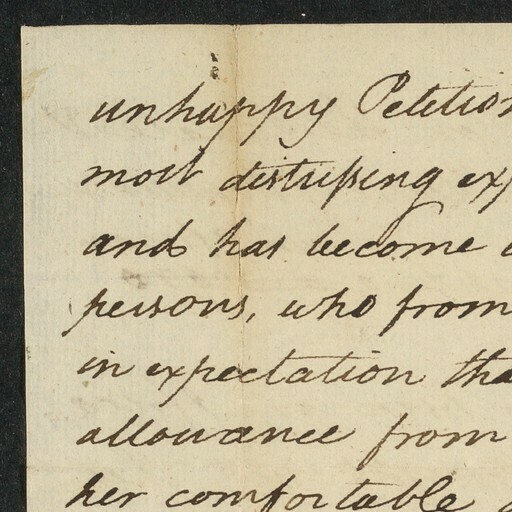 unhappy Petition
most distressing exp
and has become a
persons, who from
in expectation tha
allowance from
her comfortable